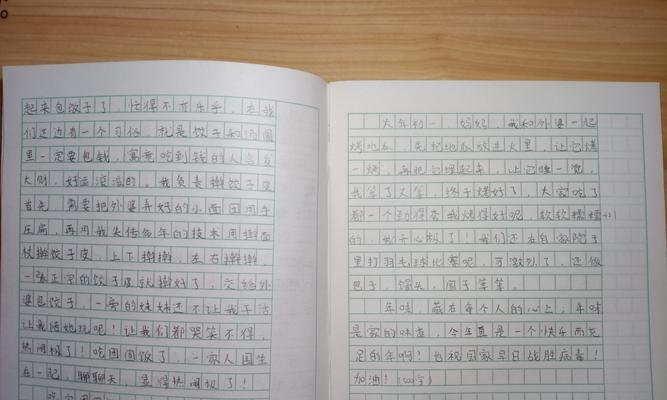 起来包饺子了，忙得不亦乐乎。在我
们这边有一个习俗，就是饺子和汤圆
里一定要包钱，寓意吃到钱的人会发
大财，好运滚滚的。我负责擀饺子皮
首先，需要把外婆弄好的小面团用手
压扁，再用我失传多年的技术用擀面
杖擀饺子皮，上下擀擀，左右擀擀
一张正宗的饺子皮就擀好了，交给外
婆包饺子，一旁的妹妹还不让我干活
让我陪她玩呢！让我们都哭笑不得，
热闹极了！吃团圆饭了，一家人围坐
在一起，聊聊天，显得热闹极了！
大年初一，妈妈，我和外婆一起
烤地瓜，先把地瓜放进火里，让它烤
一烤，再把它埋起来，让它睡一觉，
我等了又等，终于烤好了，大家吃了
都一个劲得夸我烤得好呢，软软糯糯
的，我开心极了！我们还在自家院子
里打羽毛球比赛呢，可激烈了，还做
包子，馒头，圆子等等。
年味，藏在每个人的心上；年味
是家的味道，今年真是一个快乐而充
足的年啊！也祝国家早日战胜病毒！
加油！